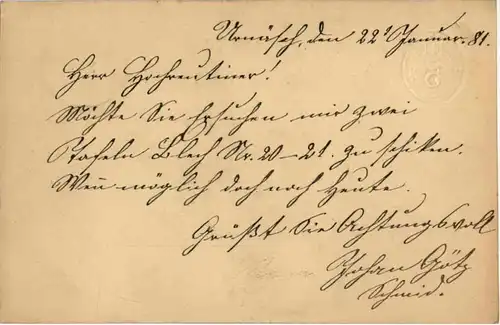 Urnäsch, den 22t Januar. 81.
Herr Hochreutiner!
Möchte Sie Ersuchen mir zwei
Tafeln Blech Nr. 20-21. zu schiken.
Wen möglich doch noch Heute.
Grüßt Sie Achtungsvoll
Johan Götz
Schmid.